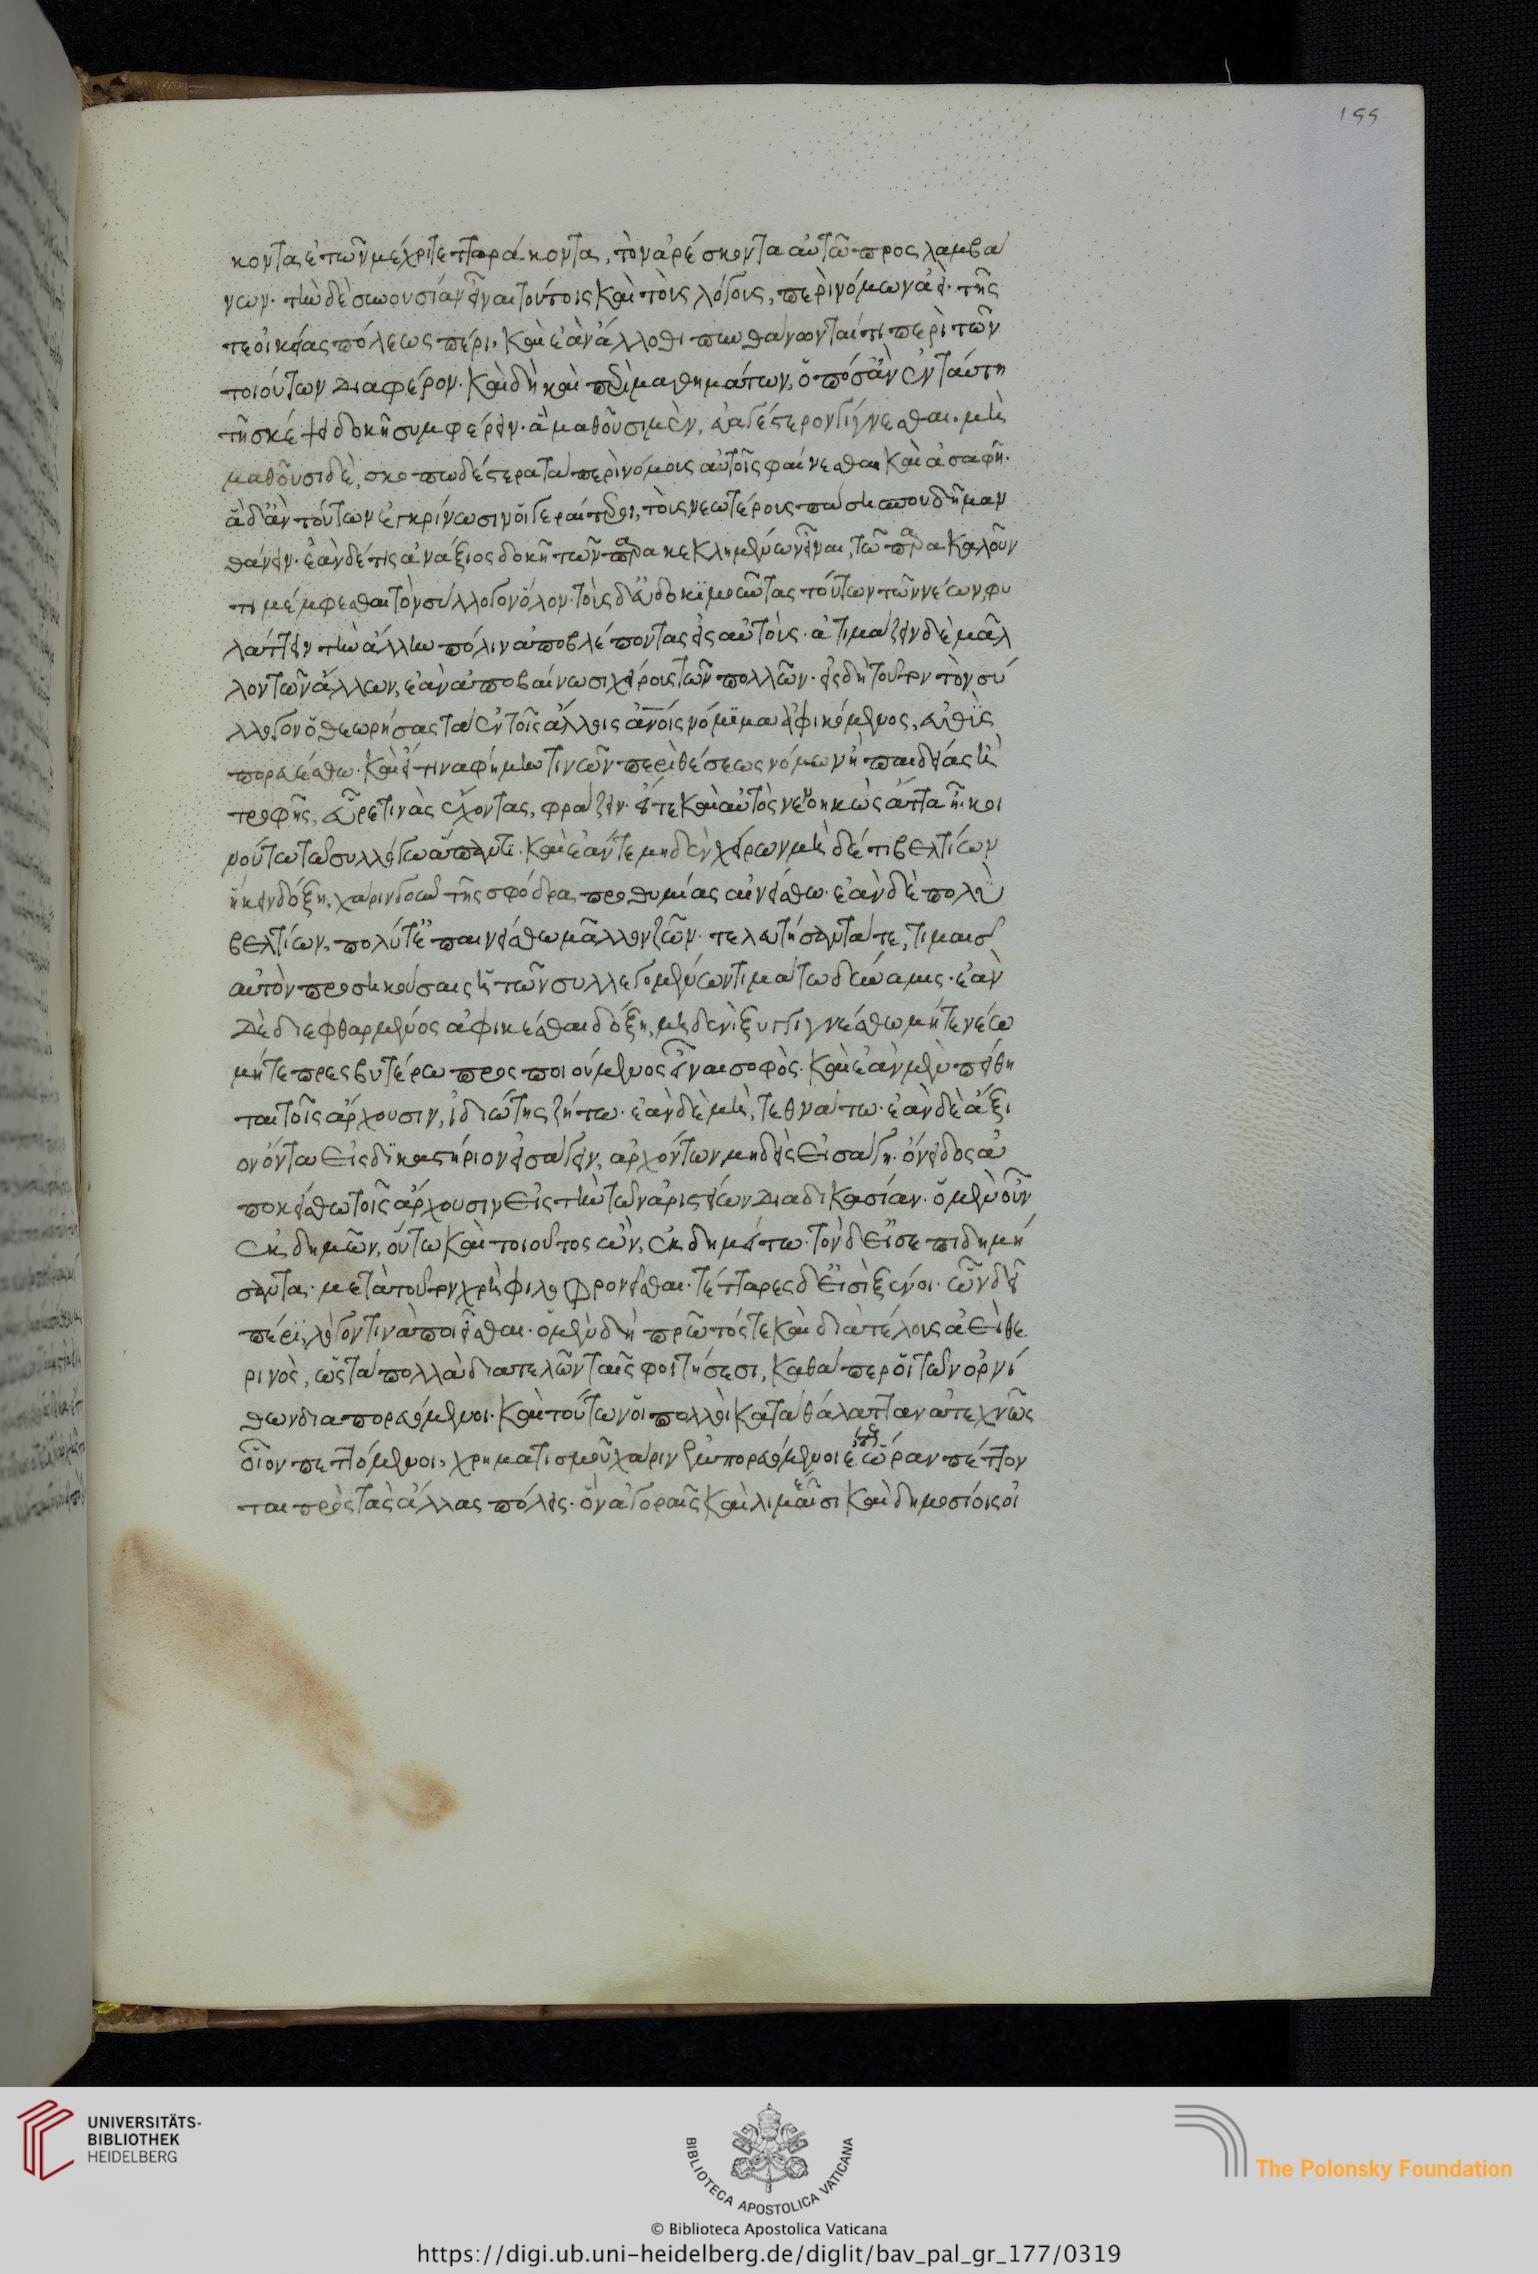 155
κοντα ἐτῶν μέχρι τετταράκοντα, τὸν ἀρέσκοντα αὐτῶ προσλαμβά
νων· τὴν δὲ συνουσίαν εἶναι τούτοις καὶ τοὺς λόγους, περὶ νόμων ἀεὶ· τῆς
τε οἰκείας πόλεως πέρι, καὶ ἐὰν ἄλλοθι πυνθάνωνταί τι περὶ τῶν
τοιούτων διαφέρον. καὶ δὴ καὶ περὶ μαθημάτων, ὁπόσ' ἂν ἐν ταύτη
τῆ σκέψει δοκῆ συμφέρειν· ἃ μαθοῦσι μὲν, εὐαγέστερον γίγνεσθαι· μὴ
μαθοῦσι δὲ, σκοτωδέστερα τὰ περὶ νόμους αὐτοῖς φαίνεσθαι καὶ ἀσαφῆ·
ἃ δ' ἂν τούτων ἐγκρίνωσιν οἱ γεραίτεροι, τοὺς νεωτέρους πάση σπουδῆ μαν
θάνειν· ἐὰν δέ τις ἀνάξιος δοκῆ τῶν παρακεκλημένων εἶναι, τῶ παρακαλοῦν
τι μέμφεσθαι τὸν σύλλογον ὅλον· τοὺς δ' εὐδοκιμοῦντας τούτων τῶν νέων, φυ
λάττειν τὴν ἄλλην πόλιν ἀποβλέποντας εἰς αὐτούς· ἀτιμάζειν δὲ μᾶλ
λον τῶν ἄλλων, ἐὰν ἀποβαίνωσι χείρους τῶν πολλῶν· εἰς δὴ τοῦτον τὸν σύ
λλογον ὁ θεωρήσας τὰ ἐν τοῖς ἄλλοις ἀνοις νόμιμα ἀφικόμενος, εὐθὺς
πορευέσθω· καὶ εἴ τινα φήμην τινῶν περὶ θέσεως νόμων ἢ παιδείας ἢ
τροφῆς, εὗρε τινὰς ἔχοντας, φράζειν· εἴτε καὶ αὐτὸς νενοηκὼς ἄττα ἥκοι
νούτω τῶ συλλόγω ἅπαντι· καὶ ἐάν τε μηδὲν χείρων μηδέ τι βελτίων
ἥκειν δόξη, χάριν γοῦν τῆς σφόδρα προθυμίας αἰνείσθω· ἐὰν δὲ πολὺ
βελτίων, πολύ τ' ἐπαινείσθω μᾶλλον ζῶν· τελευτήσαντά τε, τιμαῖς
αὐτὸν προσηκούσαις ἡ τῶν συλλεγομένων τιμάτω δύναμις· ἐὰν
δὲ διεφθαρμένος ἀφικέσθαι δόξη, μηδενὶ ξυγγιγνέσθω μήτε νέω
μήτε πρεσβυτέρω προσποιούμενος εἶναι σοφὸς· καὶ ἐὰν μὲν πείθη
ται τοῖς ἄρχουσιν, ἰδιώτης ζήτω· ἐὰν δὲ μὴ, τεθνάτω· ἐὰν δὲ ἄξι
ον ὄντα εἰς δικαστήριον εἰσάγειν, ἀρχόντων μηδεὶς εἰσάγη· ὄνειδος ἀ
ποκείσθω τοῖς ἄρχουσιν εἰς τὴν τῶν ἀριστείων διαδικασίαν· ὁ μὲν οὖν
ἐκδημῶν, οὕτω καὶ τοιοῦτος ὢν, ἐκδημείτω· τὸν δ' εἰσεπιδημή
σαντα· μετὰ τοῦτον χρὴ φιλοφρονεῖσθαι· τέτταρες δ' εἰσὶ ξένοι· ὧν δεῖ
πέρι, λόγον τινὰ ποιεῖσθαι· ὁ μὲν δὴ πρῶτός τε καὶ διὰ τέλους ἀεὶ θε
ρινὸς, ὡς τὰ πολλὰ διατελῶν ταῖς φοιτήσεσι, καθάπερ οἱ τῶν ὀρνί
θων διαπορευόμενοι· καὶ τούτων οἱ πολλοὶ κατὰ θάλατταν ἀτεχνῶς
οἷον πετόμενοι, χρηματισμοῦ χάριν ἐμπορευόμενοι ἔτους ὥραν πέτον
ται πρὸς τὰς ἄλλας πόλεις· ὃν ἀγοραῖς καὶ λιμέσι καὶ δημοσίοις οἰ
UNIVERSITÄTS-
BIBLIOTHEK
HEIDELBERG
BIBLIOTECA APOSTOLICA VATICANA
The Polonsky Foundation
© Biblioteca Apostolica Vaticana
https://digi.ub.uni-heidelberg.de/diglit/bav_pal_gr_177/0319